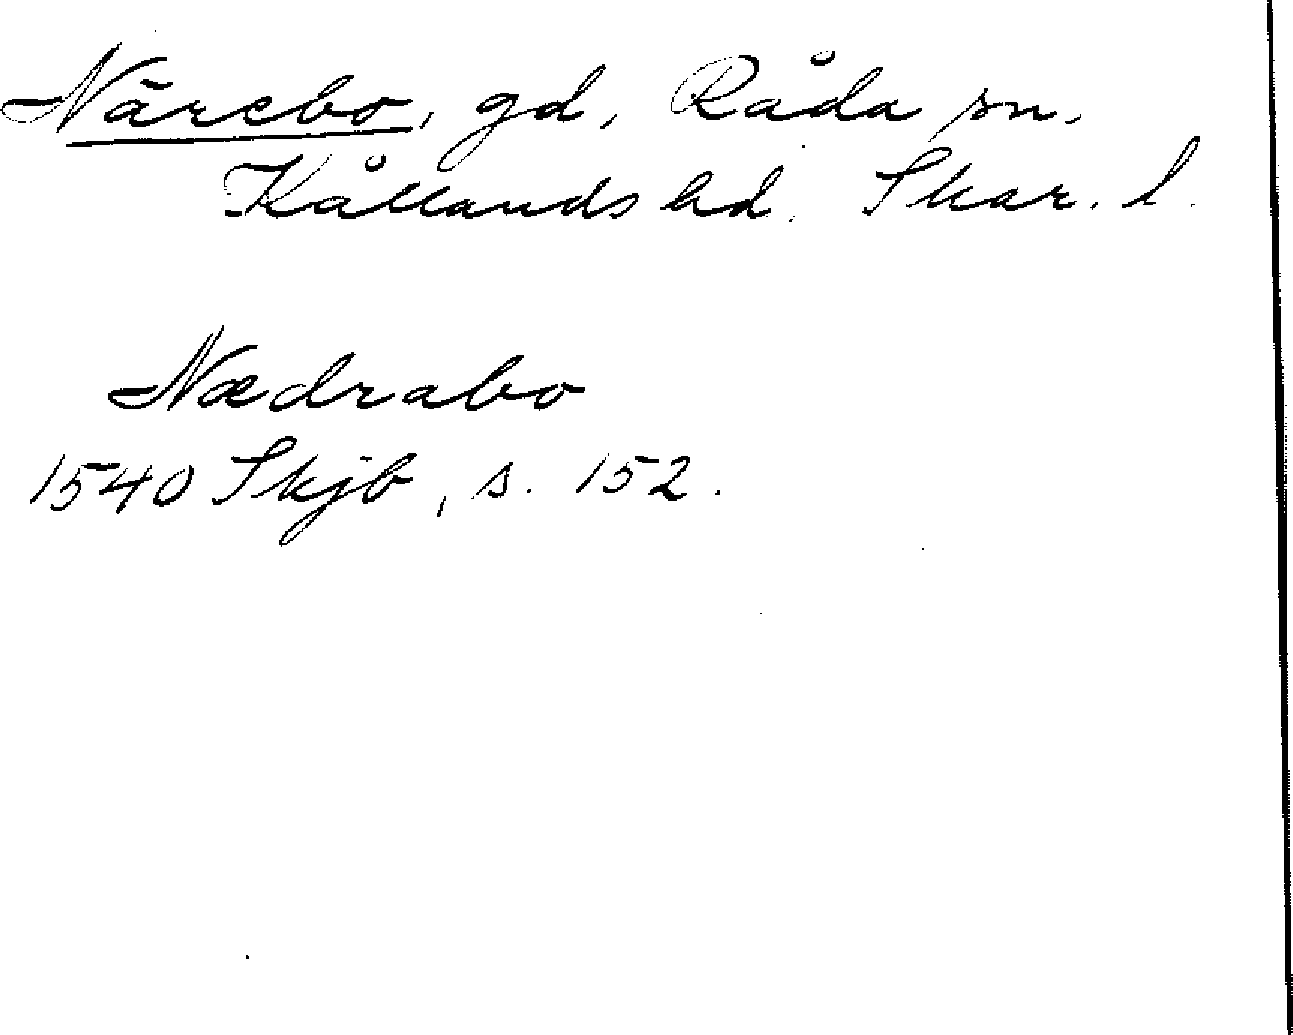 Närebo, gd, Råda sn.
Kållands hd. Skar. l.
Nædrabo
1540 Skjb, s. 152.